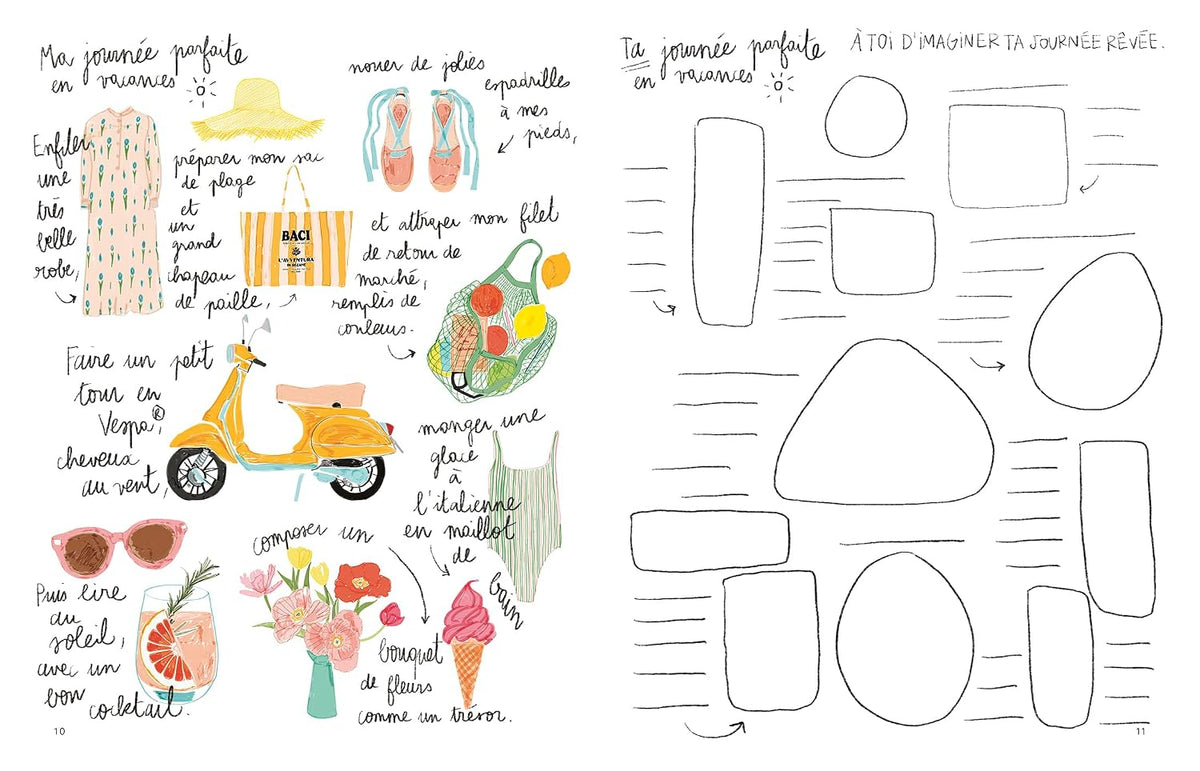 Ma journée parfaite
en vacances
Enfiler
une
très
belle
robe,
préparer mon sac
de plage
et
un
grand
chapeau
de paille,
BACI
L'AVVENTURA
nouer de jolies
espadrilles
à mes
pieds,
et attraper mon filet
de retour de
marché,
remplis de
couleurs.
Faire un petit
tour en
Vespa®,
cheveux
au vent,
manger une
glace
à
l'italienne
en maillot
de
bain
Puis lire
au
soleil,
avec un
bon
cocktail.
composer un
bouquet
de fleurs
comme un trésor.
10
Ta journée parfaite
en vacances
À TOI D'IMAGINER TA JOURNÉE RÊVÉE.
11